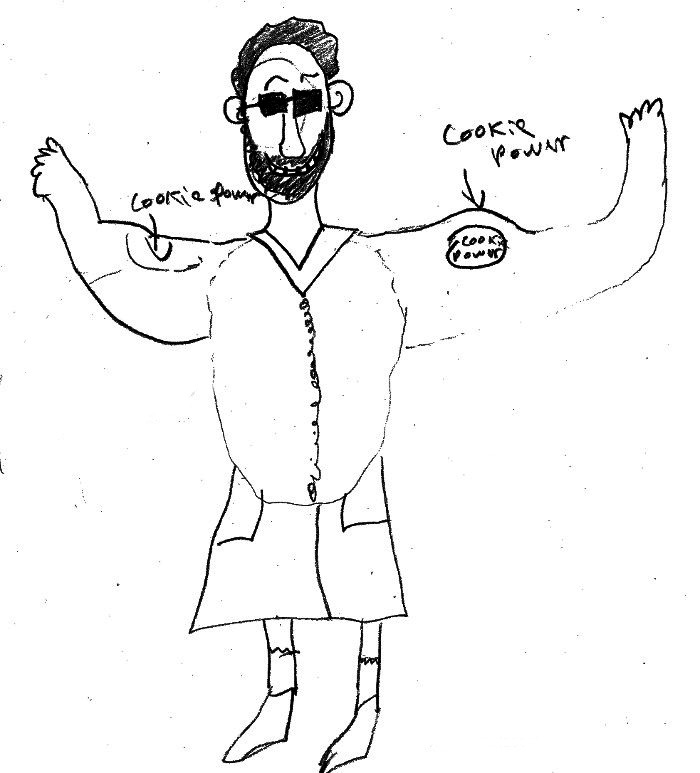 Cookie
power
Cookie power
Cooki
power